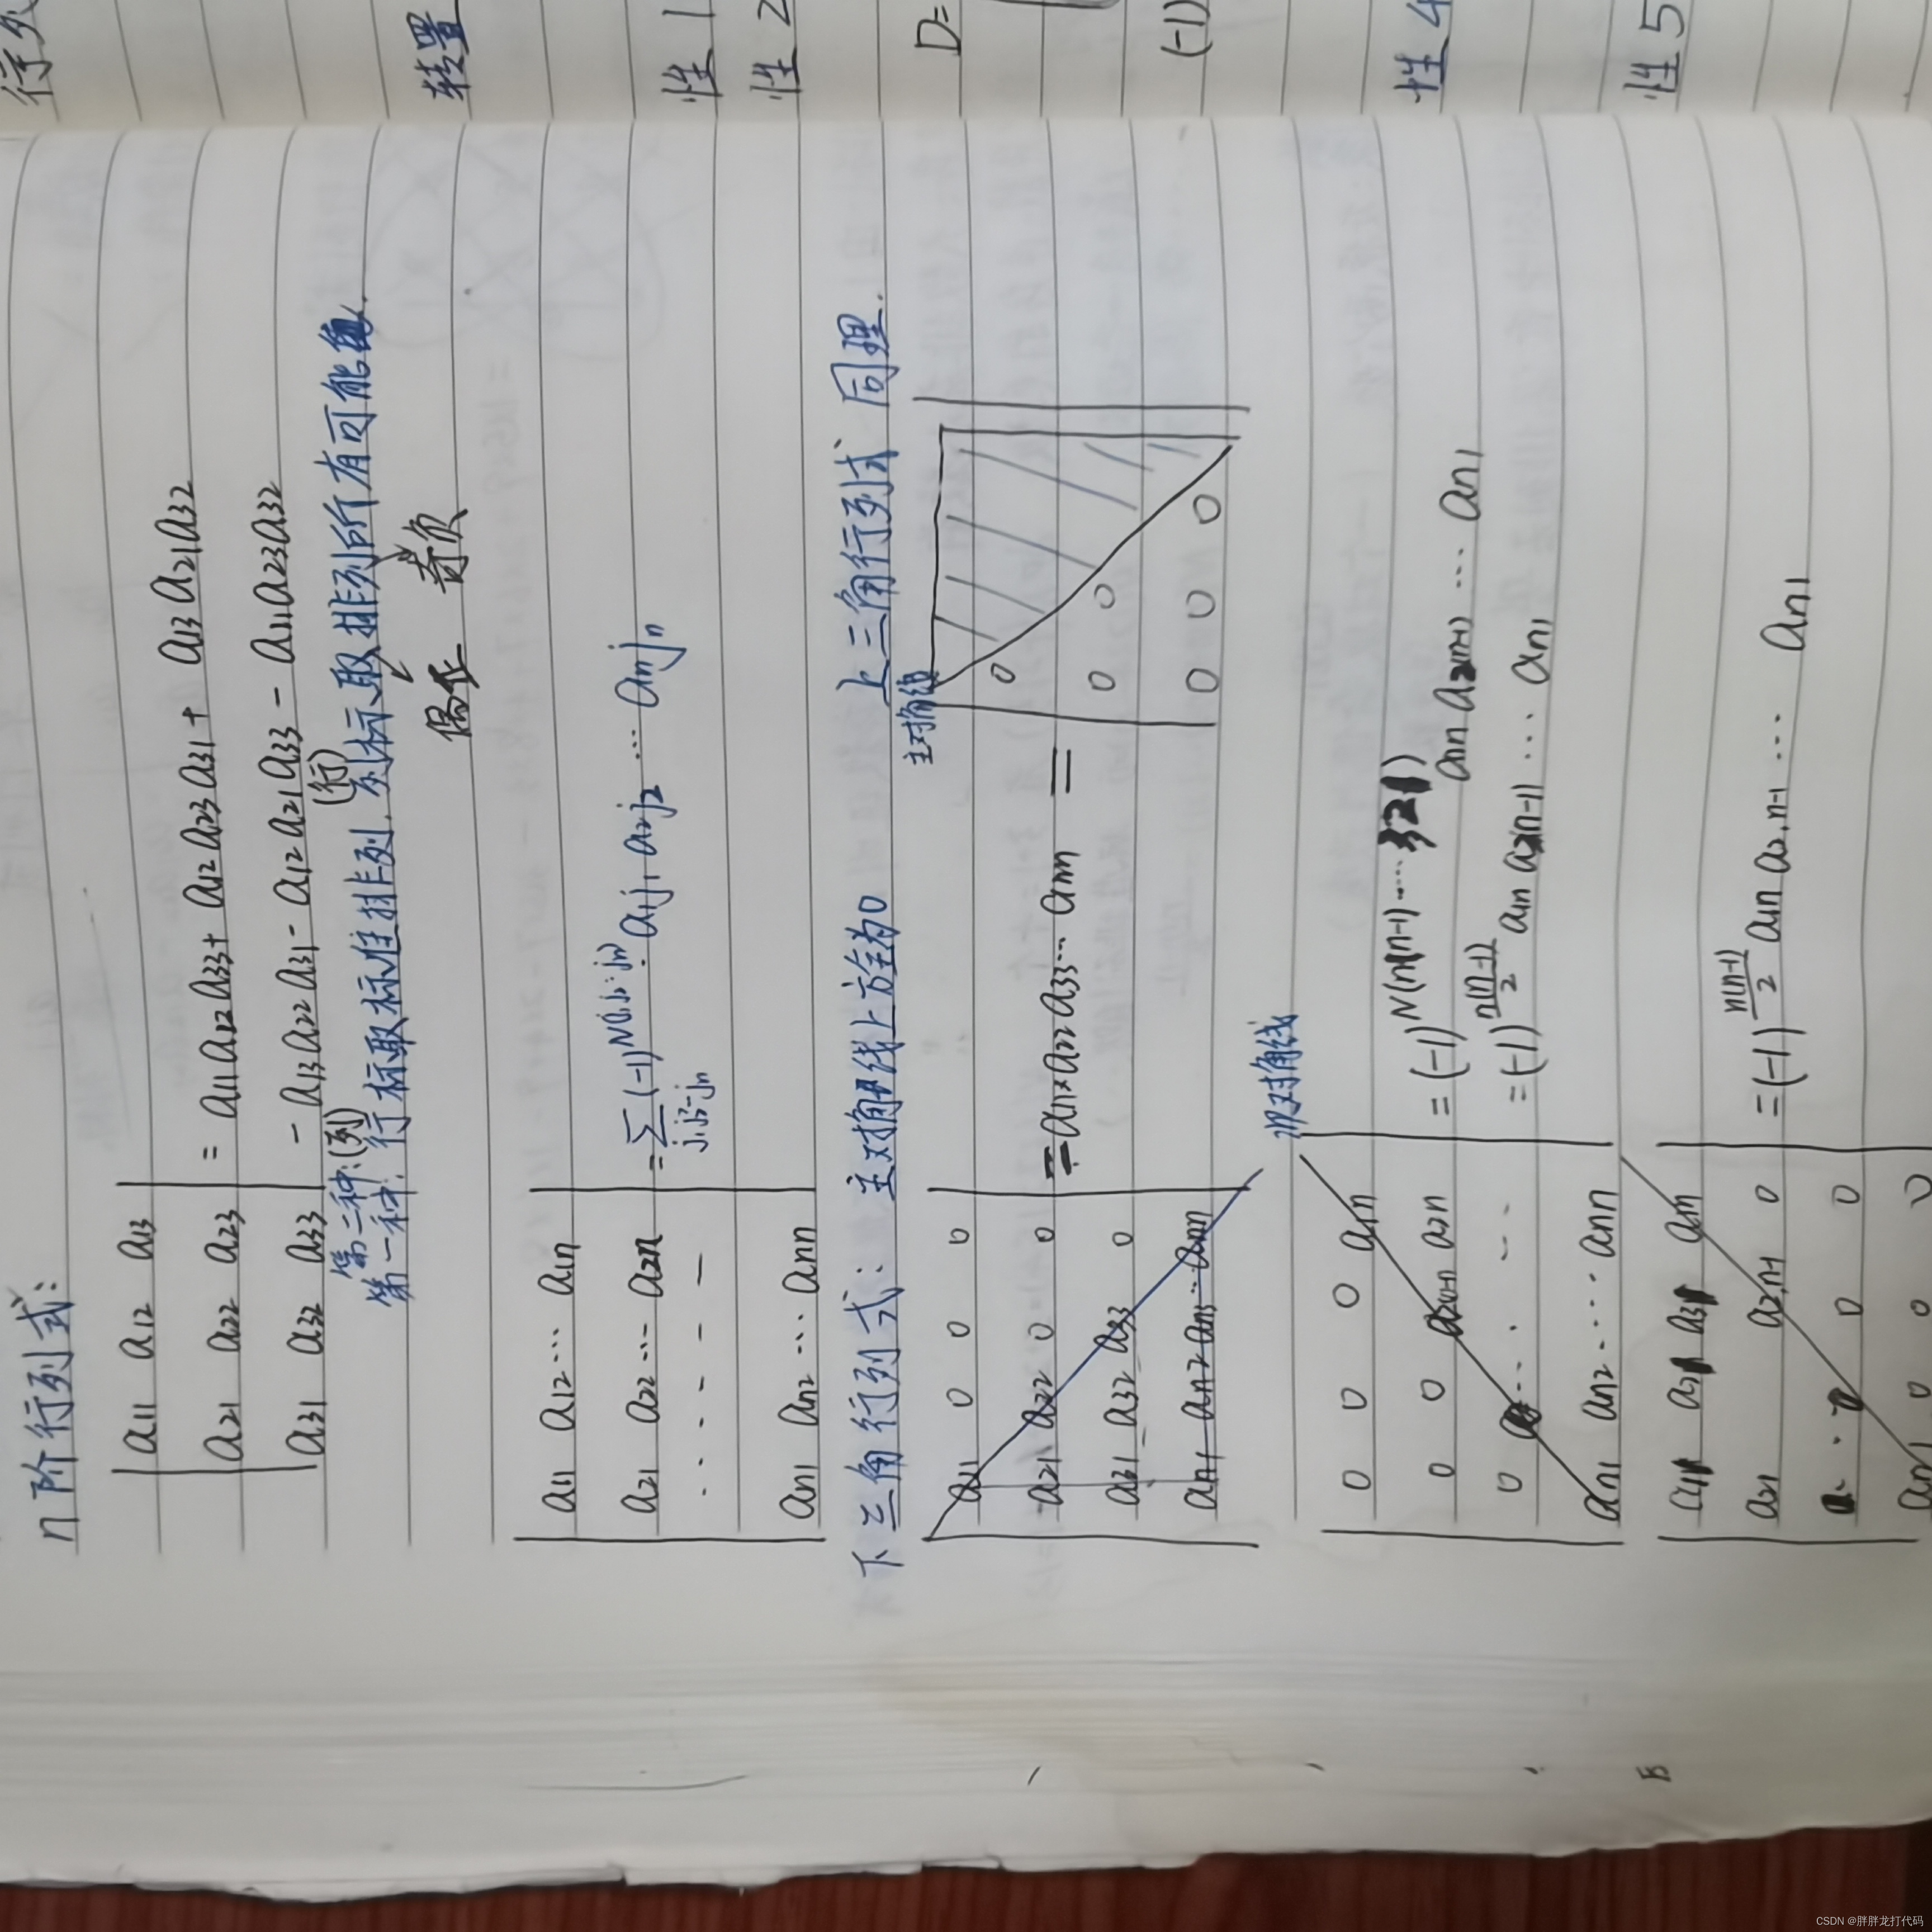 n阶行列式:
a11 a12 a13
a21 a22 a23
a31 a32 a33
= a11a12a33+ a12a23a31+ a13a21a32
- a13a22a31- a12a21a33 - a11a23a32
第二种:(列) (行)
第一种: 行标取标准排列. 列标取排列所有可能
偶正 奇负
a11 a12… a1n
a21 a22… a2n
an1 an2 … ann
=∑(-1)^N(j1j2…jn)·a1j1 a2j2 … anjn
j1j2…jn
下三角行列式: 主对角线上方全为0 上三角行列式 同理.
主对角线
a11 0 0 0
a21 a22 0 0
a31 a32 a33 0
an1 an2 an3…ann
=a11×a22a33…ann =
0
0 0
0 0 0
次对角线
0 0 0 a1n
0 0 a2(n-1) a2n
0
an1 an2 …… ann
=(-1)^N(n(n-1)……321) a1n a2(n-1) … an1
=(-1)^n(n-1)/2 a1n a2(n-1) … an1
a11 a21 a31 a1n
a21 a2,n-1 0
0 0
an1 0 0 0
=(-1)^n(n-1)/2 a1n a2,n-1 … an1
转置
性1
性2
D=
(-1)
性4
性5
CSDN @胖胖龙打代码